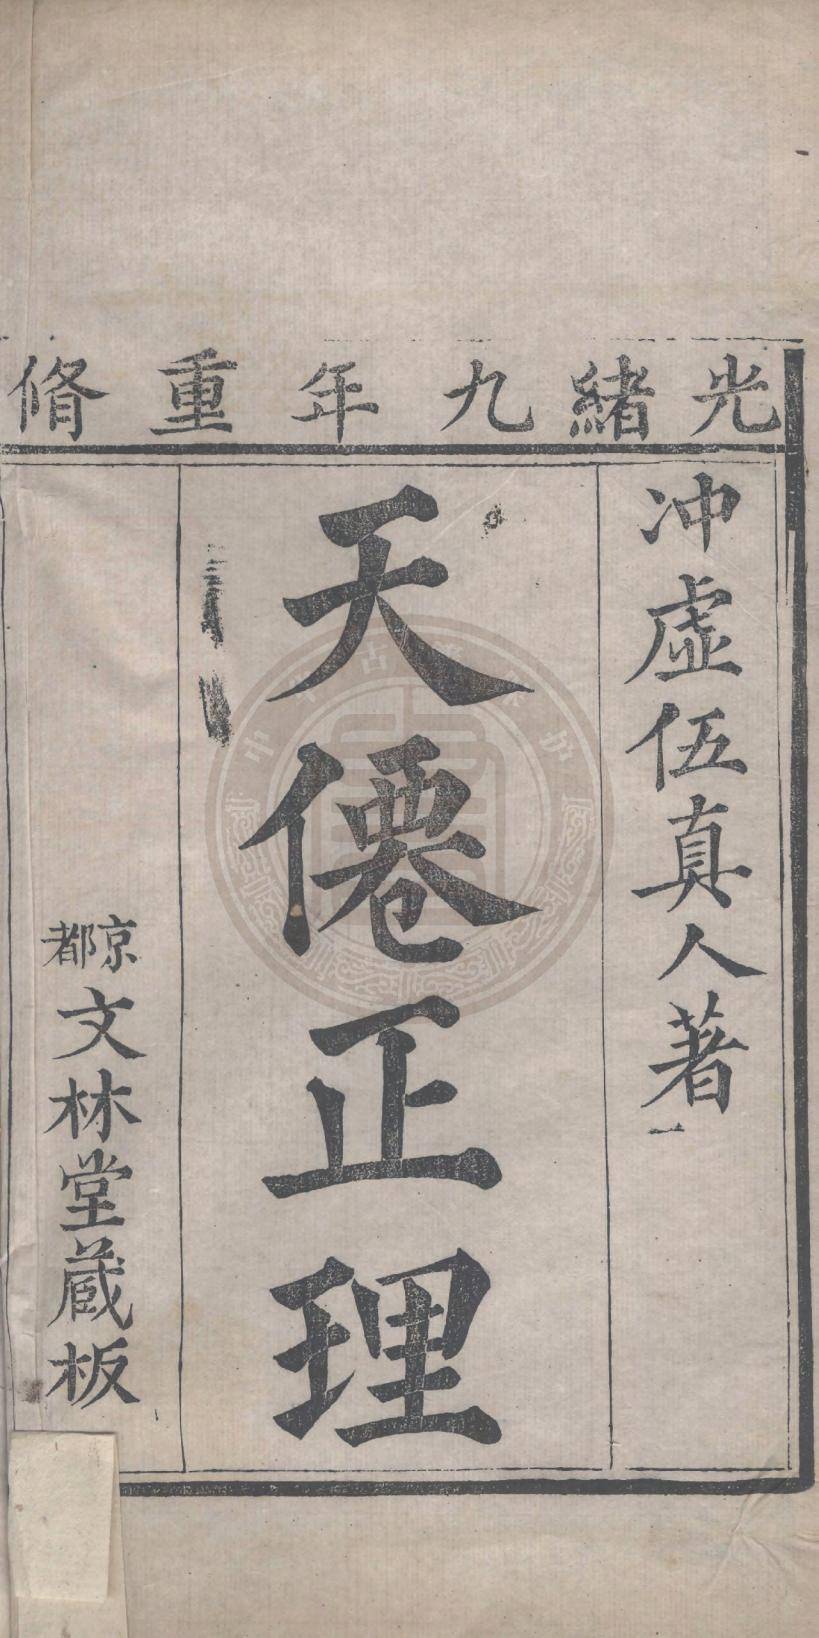 光緒九年重脩
冲虛伍真人著
天僊正理
京都
文林堂藏板